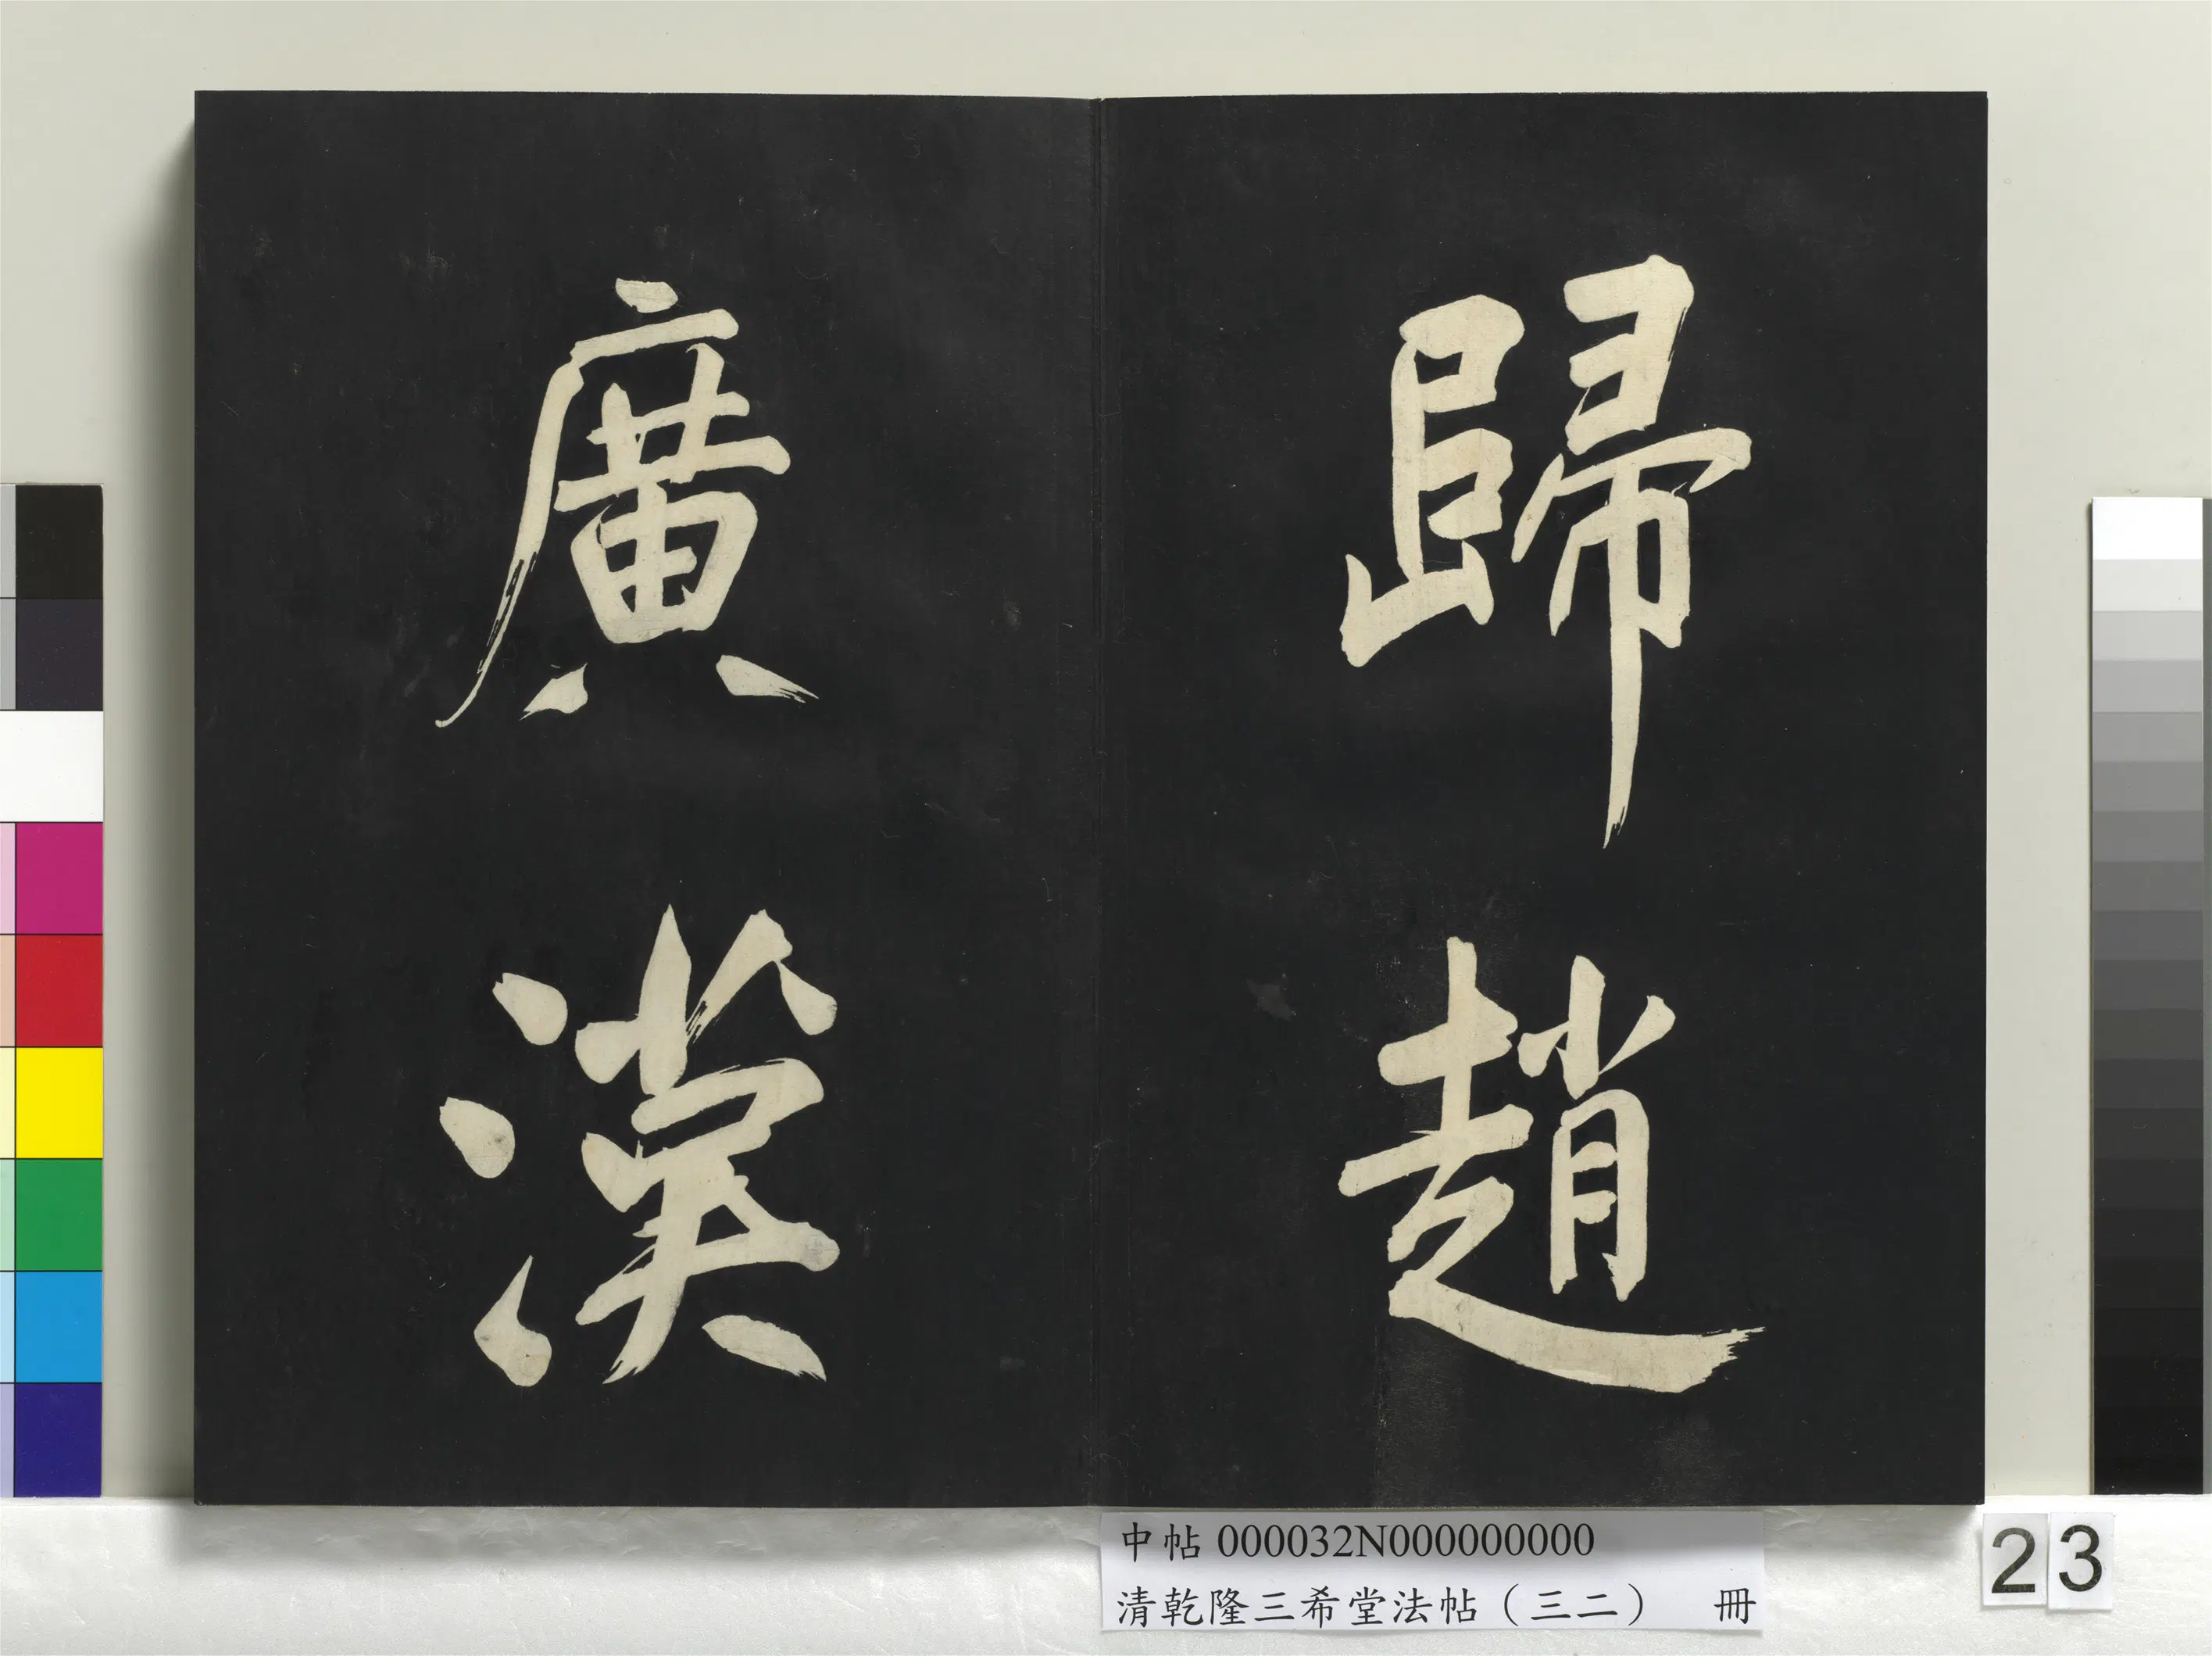 歸趙
廣漢
中帖 000032N000000000
清乾隆三希堂法帖（三二） 冊
23